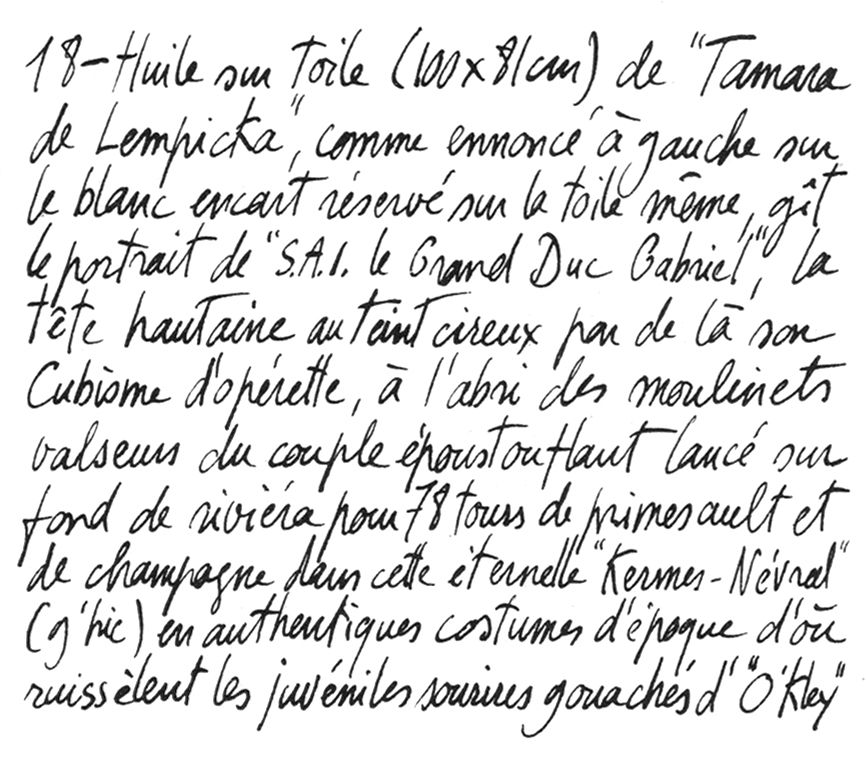 18-Huile sur toile (100x81cm) de "Tamara
de Lempicka", comme ennoncé à gauche sur
le blanc encart réservé sur la toile même, gît
le portrait de "S.A.I. le Grand Duc Gabriel", la
tête hautaine au teint cireux par de là son
Cubisme d'opérette, à l'abri des moulinets
valseurs du couple époustouflant lancé sur
fond de riviéra pour 78 tours de primesault et
de champagne dans cette éternelle "Kermes-Névral"
(g'hic) en authentiques costumes d'époque d'où
ruissèlent les juvéniles sourires gouachés d'"O'Kley"